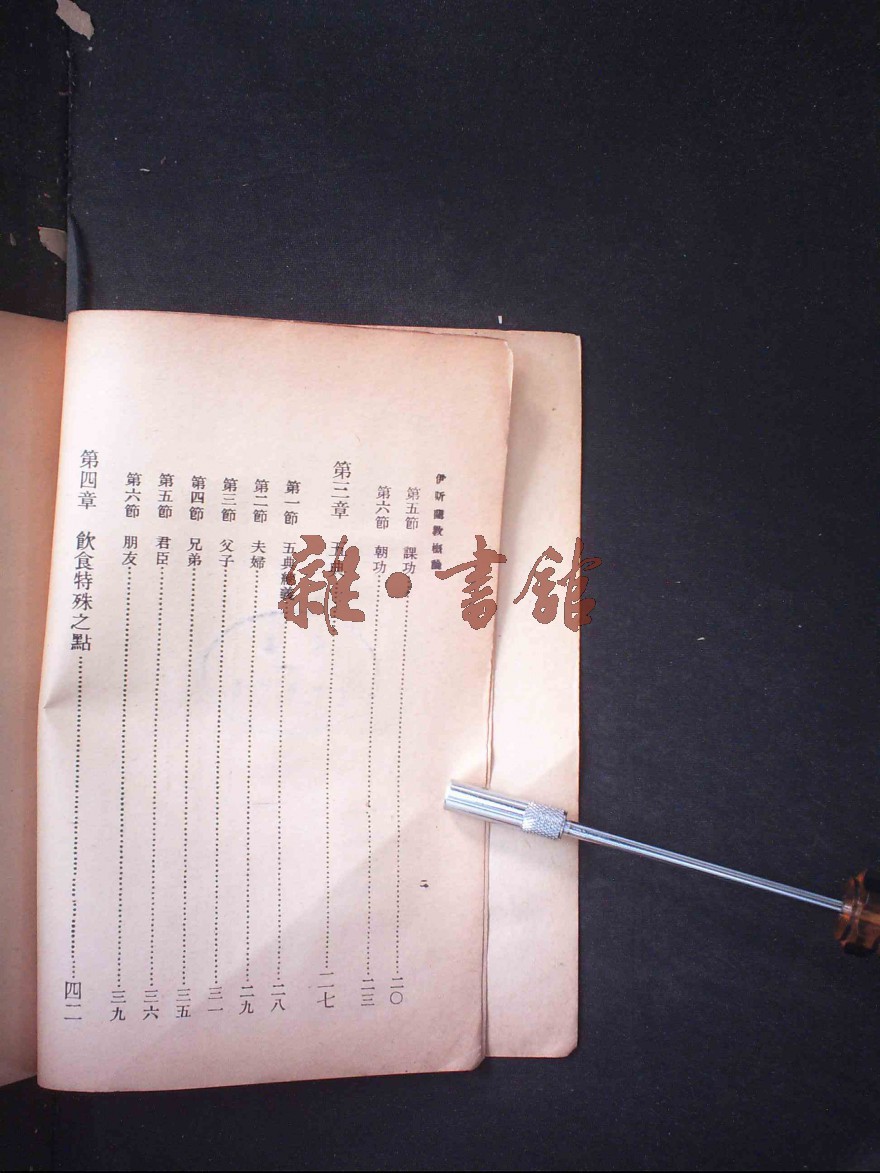 伊斯蘭教概論
第五節 課功 二〇
第六節 朝功 二三
第三章 五典 二七
第一節 五典總義 二八
第二節 夫婦 二九
第三節 父子 三一
第四節 兄弟 三五
第五節 君臣 三六
第六節 朋友 三九
第四章 飲食特殊之點 四二
二
雜·書館